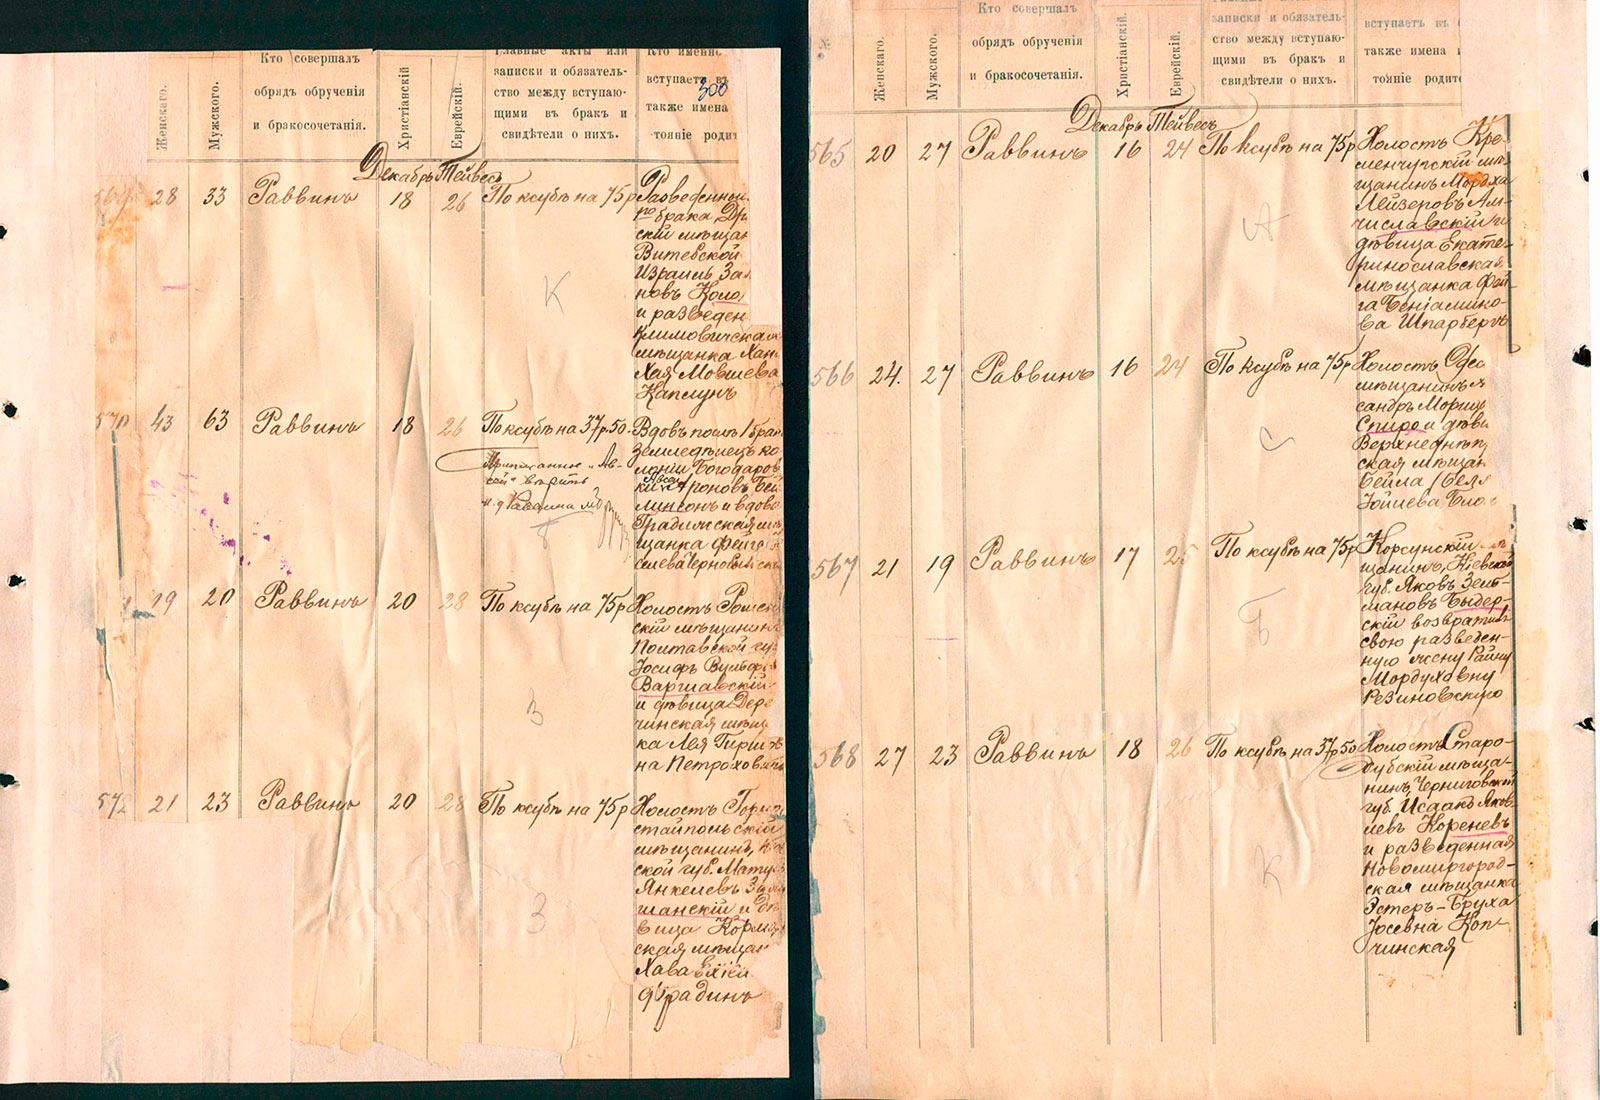 Женскаго.
Мужского.
Кто совершалъ
обрядъ обрученія
и бракосочетанія.
Христіанскій
Еврейскій.
Главные акты или
записки и обязатель-
ство между вступаю-
щими въ бракъ и
свидѣтели о нихъ.
Кто именно
вступаетъ въ
также имена
тояніе родит
300
Декабрь Тейвесъ
28 33 Раввинъ 18 26 По ксубѣ на 75 р
Разведенный
по брака
скій мѣщан
Витебской
Израиль
новъ
и разведен
Климовичская
мѣщанка Хан
Хая Мовшева
Каплунъ
570 43 63 Раввинъ 18 26 По ксубѣ на 37 р. 50
Вдовъ послѣ 1 брак
Земледѣлецъ ко
лоніи Богодаров
роновъ Бей
минсонъ и вдова
Градижская мѣ
щанка
19 20 Раввинъ 20 28 По ксубѣ на 75 р
Холостъ Ромен
скій мѣщанинъ
Полтавской гу
Іосифъ Вульф
Варшавскій
и дѣвица Дере
чинская мѣщ
ка Лея Гирш
на Петрохов
572 21 23 Раввинъ 20 28 По ксубѣ на 75 р
Холостъ Горно
стайпольскій
мѣщанинъ,
ской губ.
Янкелевъ
шанскій и дѣ
вица
ская мѣщан
Хава
Фрадинъ
К
З
З
Женскаго.
Мужского.
Кто совершалъ
обрядъ обрученія
и бракосочетанія.
Христіанскій.
Еврейскій.
записки и обязатель-
ство между вступаю-
щими въ бракъ и
свидѣтели о нихъ.
вступаетъ въ
также имена и
тояніе родите
Декабрь Тейвесъ
565 20 27 Раввинъ 16 24 По ксубѣ на 75 р
Холостъ Кре-
менчугскій мѣ-
щанинъ Мордха
Лейзеровъ Ам-
числавскій и
дѣвица Екате-
ринославская
мѣщанка Фей-
га Беніамино-
ва Шпарбергъ
566 24. 27 Раввинъ 16 24 По ксубѣ на 75 р
Холостъ Одес
мѣщанинъ
сандръ Мориц
Спиро и дѣви
Верхнеднѣп
ская мѣщан
Бейла /Белла
567 21 19 Раввинъ 17 25 По ксубѣ на 75 р
Корсунскій
щанинъ, Кіевской
губ. Яковъ Зель-
мановъ Быдер-
скій возвратилъ
свою разведен-
ную жену Райну
Мордуховну
Резиновскую
568 27 23 Раввинъ 18 26 По ксубѣ на 37 р 50
Холостъ Старо-
дубскій мѣща-
нинъ, Черниговской
губ. Исаакъ Яков
левъ Кореневъ
и разведенная
Новомиргород-
ская мѣщанка
Эстеръ-Бруха
Іосевна Коп-
чинская
А
С
Б
К